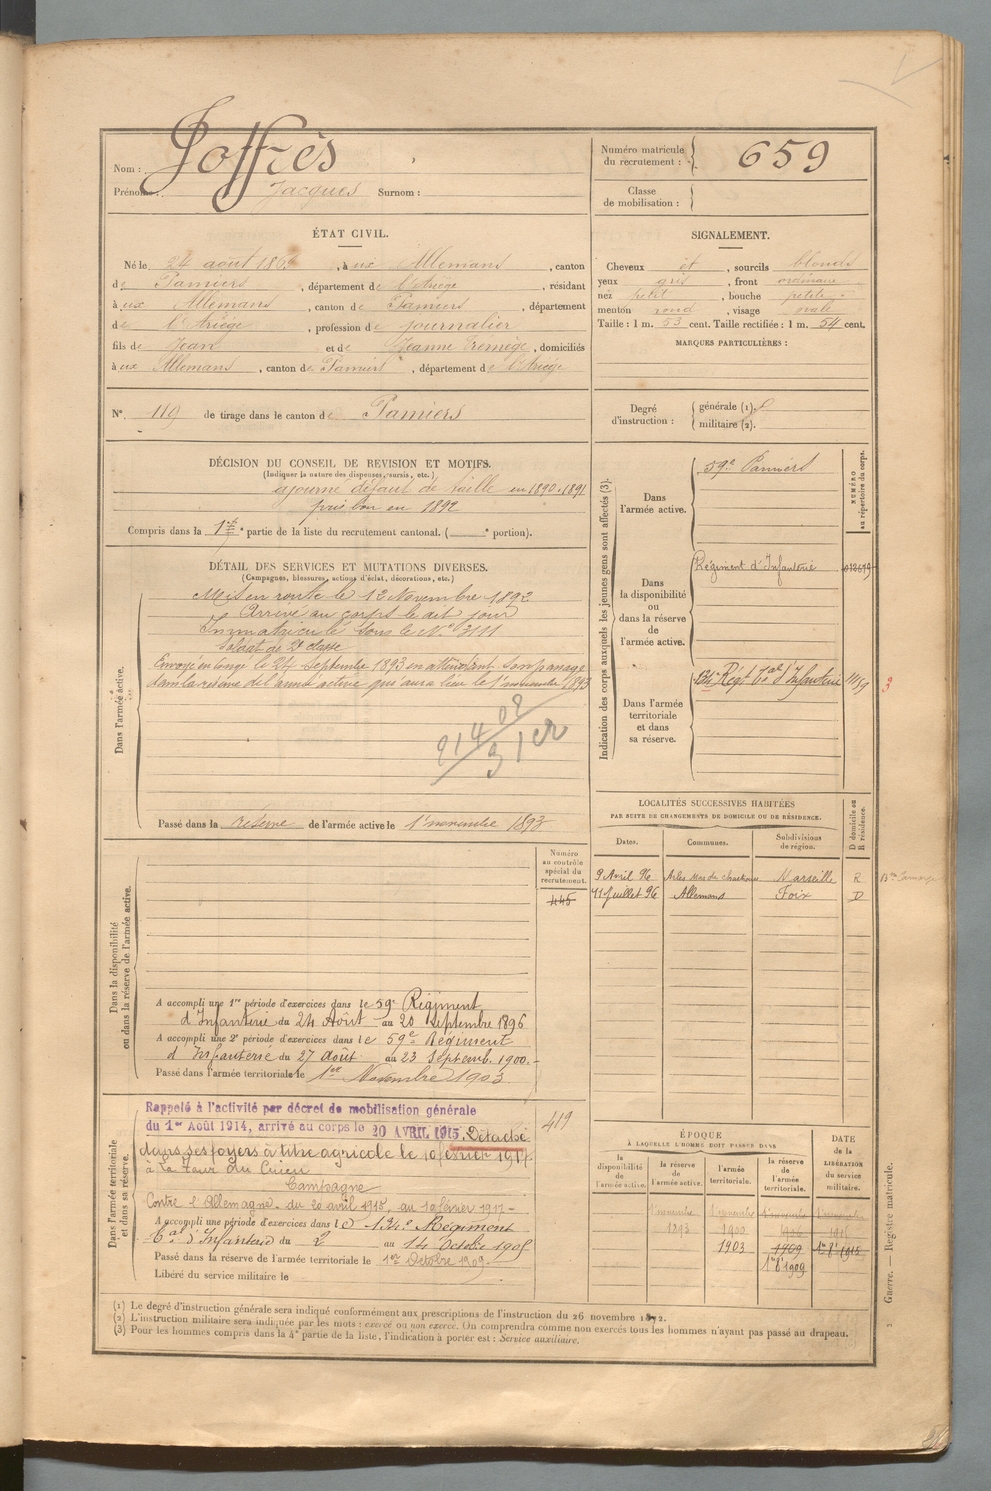 Nom : Joffrès
Prénoms : Jacques Surnom :
Numéro matricule du recrutement : 659
Classe de mobilisation :
ÉTAT CIVIL.
Né le 24 août 186 , à ux Allemans , canton
de Pamiers , département de l'Ariège , résidant
à ux Allemans , canton de Pamiers , département
de l'Ariège , profession de journalier
fils de Jean et de Jeanne , domiciliés
à ux Allemans , canton de Pamiers , département de l'Ariège
SIGNALEMENT.
Cheveux et , sourcils blonds
yeux gris , front ordinaire
nez petit , bouche petite
menton rond , visage ovale
Taille : 1 m. 53 cent. Taille rectifiée : 1 m. 54 cent.
MARQUES PARTICULIÈRES :
N° 119 de tirage dans le canton de Pamiers
Degré d'instruction : générale (1).
militaire (2).
DÉCISION DU CONSEIL DE REVISION ET MOTIFS.
(Indiquer la nature des dispenses, sursis, etc.)
ajourné défaut de taille en 1890.1891
pris bon en 1892
Compris dans la 1re partie de la liste du recrutement cantonal. ( portion).
DÉTAIL DES SERVICES ET MUTATIONS DIVERSES.
(Campagnes, blessures, actions d'éclat, décorations, etc.)
Dans l'armée active.
Mis en route le 12 Novembre 1892
Arrivé au corps le dit jour
Immatriculé sous le N° 3111
Soldat de 2e classe
Envoyé en congé le 24 septembre 1893 en attendant son passage
dans la réserve de l'armée active qui aura lieu le 1er novembre 1893
Passé dans la réserve de l'armée active le 1er novembre 1893
Indication des corps auxquels les jeunes gens sont affectés (3).
NUMÉRO au répertoire du corps.
Dans l'armée active.
59e Pamiers
Dans la disponibilité ou dans la réserve de l'armée active.
Régiment d'Infanterie
Dans l'armée territoriale et dans sa réserve.
134e Régt Tal d'Infanterie 1159
LOCALITÉS SUCCESSIVES HABITÉES
PAR SUITE DE CHANGEMENTS DE DOMICILE OU DE RÉSIDENCE.
Dates. Communes. Subdivisions de région. D domicile ou R résidence.
9 Avril 96 Arles Marseille R
11 Juillet 96 Allemans Foix D
Dans la disponibilité ou dans la réserve de l'armée active.
Numéro au contrôle spécial du recrutement.
445
A accompli une 1re période d'exercices dans le 59e Régiment
d'Infanterie du 24 Août au 20 Septembre 1896
A accompli une 2e période d'exercices dans le 59e Régiment
d'Infanterie du 27 août au 23 Septemb. 1900.
Passé dans l'armée territoriale le 1er Novembre 1903
Dans l'armée territoriale et dans sa réserve.
419
Rappelé à l'activité par décret de mobilisation générale
du 1er Août 1914, arrivé au corps le 20 AVRIL 1915. Détaché
dans ses foyers à titre agricole le 10 février 1917.
à La Tour du Crieu
Campagne
Contre l'Allemagne du 20 avril 1915, au 10 février 1917
A accompli une période d'exercices dans le 134e Régiment
Tal d'Infanterie du 2 au 14 Octobre 1905
Passé dans la réserve de l'armée territoriale le 1er Octobre 1909
Libéré du service militaire le
ÉPOQUE
À LAQUELLE L'HOMME DOIT PASSER DANS
la disponibilité de l'armée active. la réserve de l'armée active. l'armée territoriale. la réserve de l'armée territoriale. DATE de la LIBÉRATION du service militaire.
1er novembre 1er novembre 1er novembre 1er novembre
1893 1900
1903 1909 1er 8bre 1915
1er 8bre 1909
(1) Le degré d'instruction générale sera indiqué conformément aux prescriptions de l'instruction du 26 novembre 1872.
(2) L'instruction militaire sera indiquée par les mots : exercé ou non exercé. On comprendra comme non exercés tous les hommes n'ayant pas passé au drapeau.
(3) Pour les hommes compris dans la 4e partie de la liste, l'indication à porter est : Service auxiliaire.
Guerre. — Registre matricule.
2